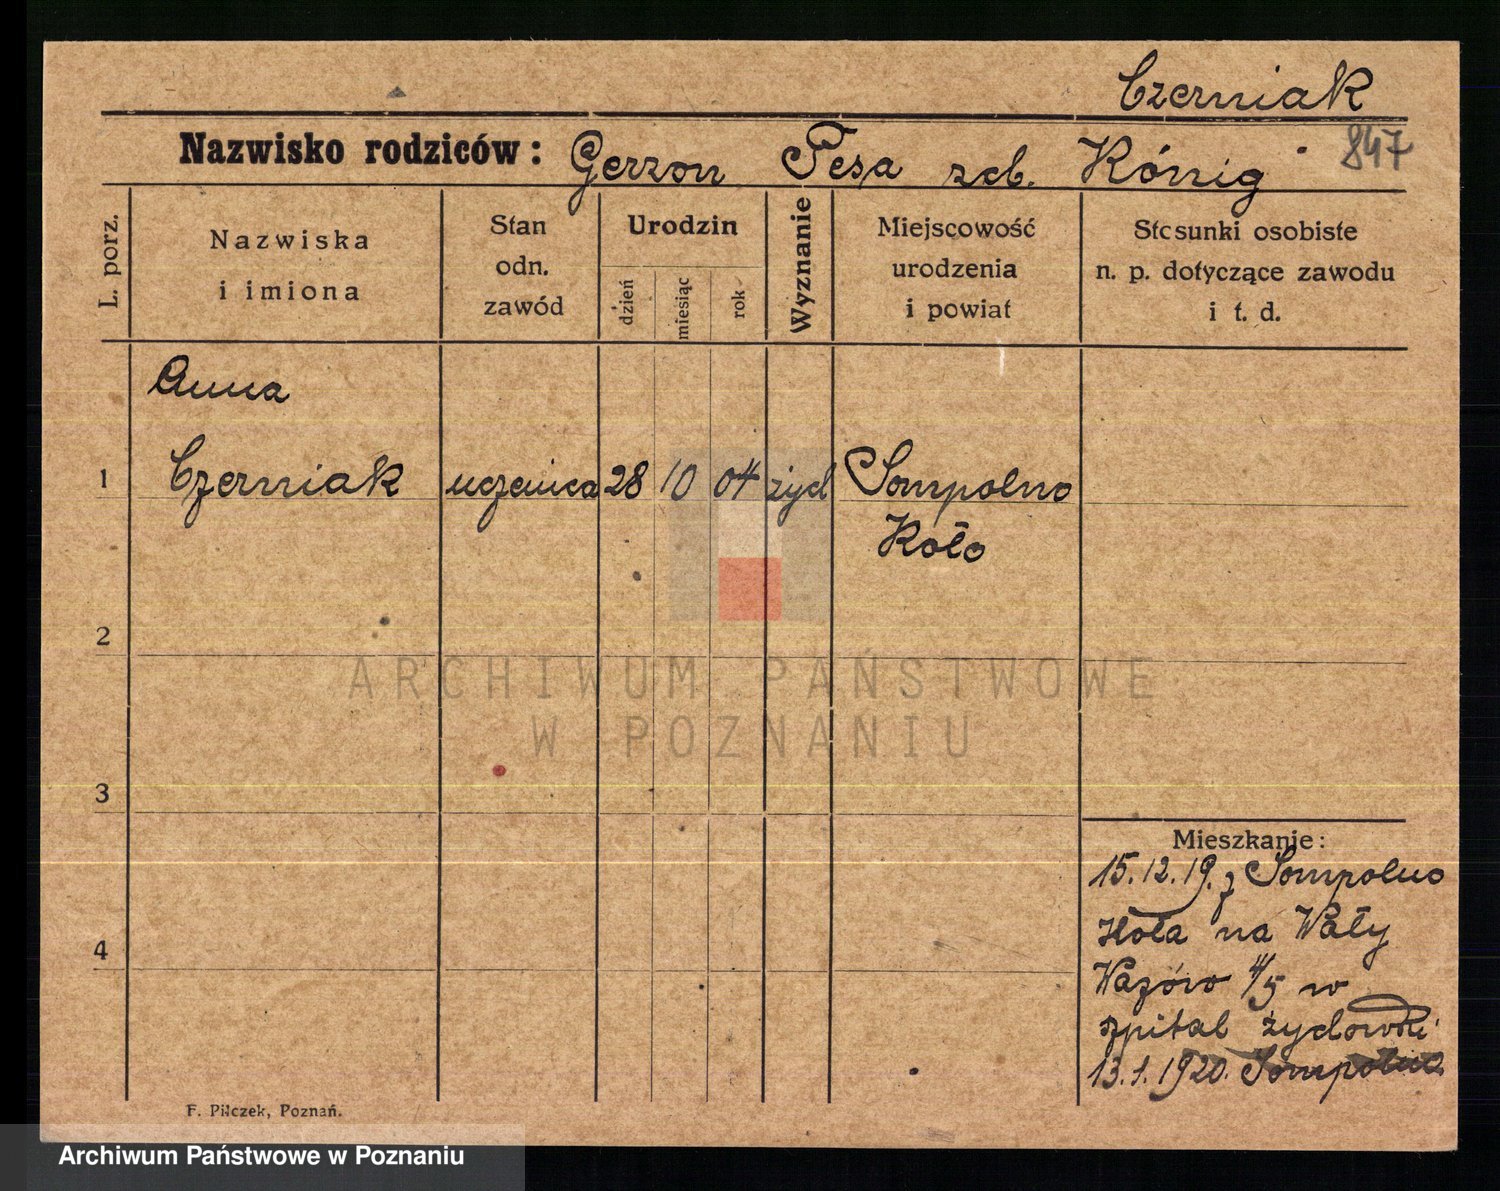 Czerniak
847
Nazwisko rodziców: Gerzon Pesa zd. König
L. porz.
Nazwiska
i imiona
Stan
odn.
zawód
Urodzin
dzień
miesiąc
rok
Wyznanie
Miejscowość
urodzenia
i powiat
Stosunki osobiste
n. p. dotyczące zawodu
i t. d.
Anna
1 Czerniak uczenica 28 10 04 żyd Sompolno
Koło
2
ARCHIWUM PAŃSTWOWE
W POZNANIU
3
Mieszkanie:
15.12.19. z Sompolno
Koła na Wały
4
Wazów 4/5 w
szpital żydowski
13.1.1920. Sompolno
F. Pilczek, Poznań.
Archiwum Państwowe w Poznaniu